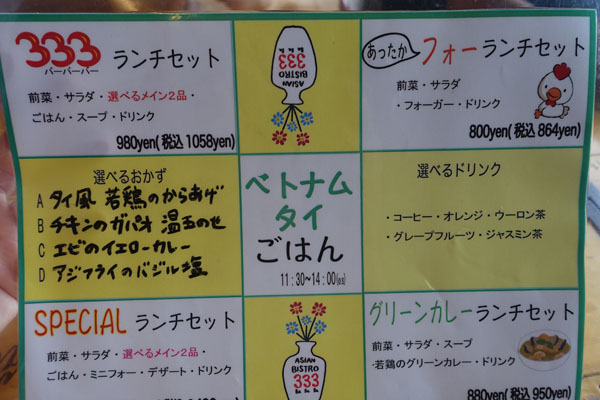 333 ランチセット
バーバーバー
前菜・サラダ・選べるメイン2品・
ごはん・スープ・ドリンク
980yen(税込 1058yen)
333
ASIAN
BISTRO
あったか フォーランチセット
前菜・サラダ
・フォーガー・ドリンク
800yen(税込 864yen)
選べるおかず
A タイ風 若鶏のからあげ
B チキンのガパオ 温玉のせ
C エビのイエローカレー
D アジフライのバジル塩
ベトナム
タイ
ごはん
11:30~14:00
選べるドリンク
・コーヒー・オレンジ・ウーロン茶
・グレープフルーツ・ジャスミン茶
SPECIAL ランチセット
前菜・サラダ・選べるメイン2品・
ごはん・ミニフォー・デザート・ドリンク
ASIAN
BISTRO
333
グリーンカレーランチセット
前菜・サラダ・スープ
・若鶏のグリーンカレー・ドリンク
880yen(税込 950yen)